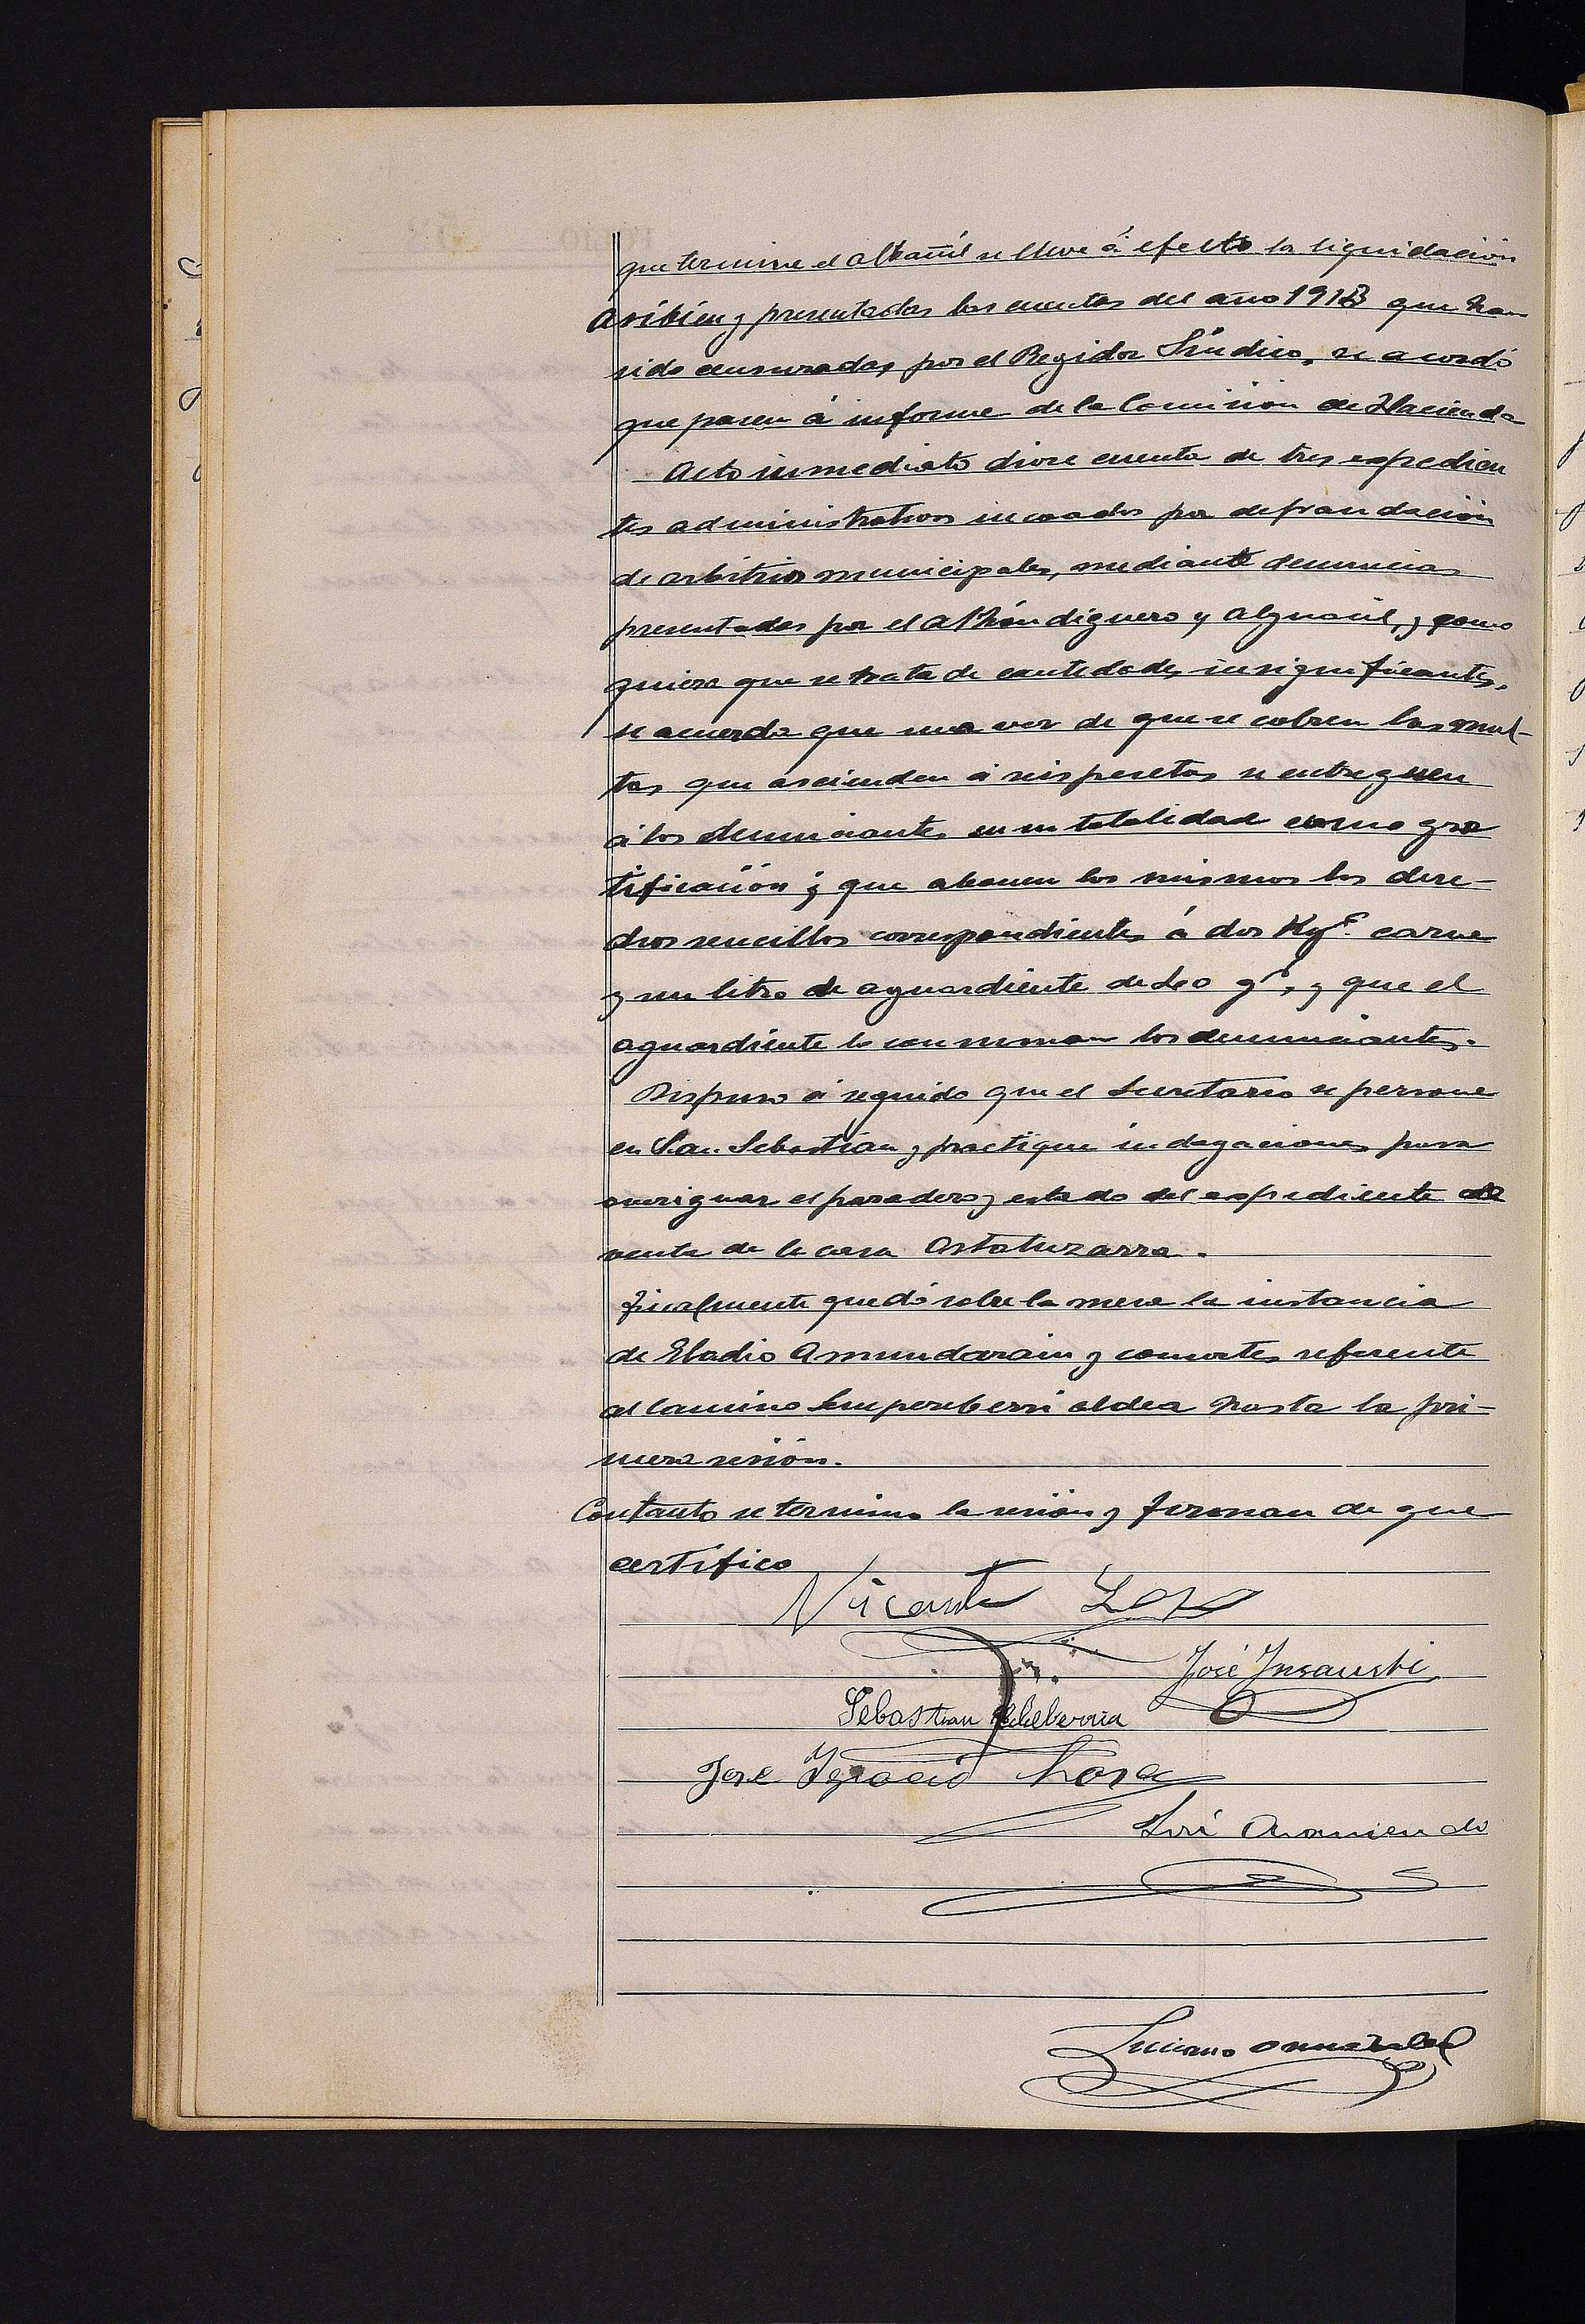 que termine el albañil se lleve á efecto la liquidación
Asibien y presentadas las cuentas del año 1913 que han
sido censuradas por el Regidor Síndico, se acordó
que pasen á informe de la Comisión de Hacienda
Acto inmediato diose cuenta de tres expedien
tes administrativos incoados por defraudación
de arbitrios municipales, mediante denuncias
presentadas por el Alhóndiguero y Alguacil, y como
quiera que se trata de cantidades insignificantes,
se acuerda que una vez de que se cobren las mul-
tas que ascienden á seis pesetas se entreguen
á los denunciantes en su totalidad como gra
tificación y que abonen los mismos los dere-
chos sencillos correspondientes á dos Kgs. carne
y un litro de aguardiente de gs, y que el
aguardiente lo consuman los denunciantes.
Dispuso á seguido que el Secretario se persone
en San Sebastian y practique indagaciones para
averiguar el paradero y estado del expediente de
venta de la casa Ostatuzarra.
Finalmente quedó sobre la mesa la instancia
de Eladio Amundarain y consortes referente
al camino Sempereberri aldea hasta la pri-
mera sesión.
Contanto se termina la sesión y firman de que
certifico
Vicente
José Insausti
Sebastian Echeberria
José Ignacio
José Asamendo
Luciano